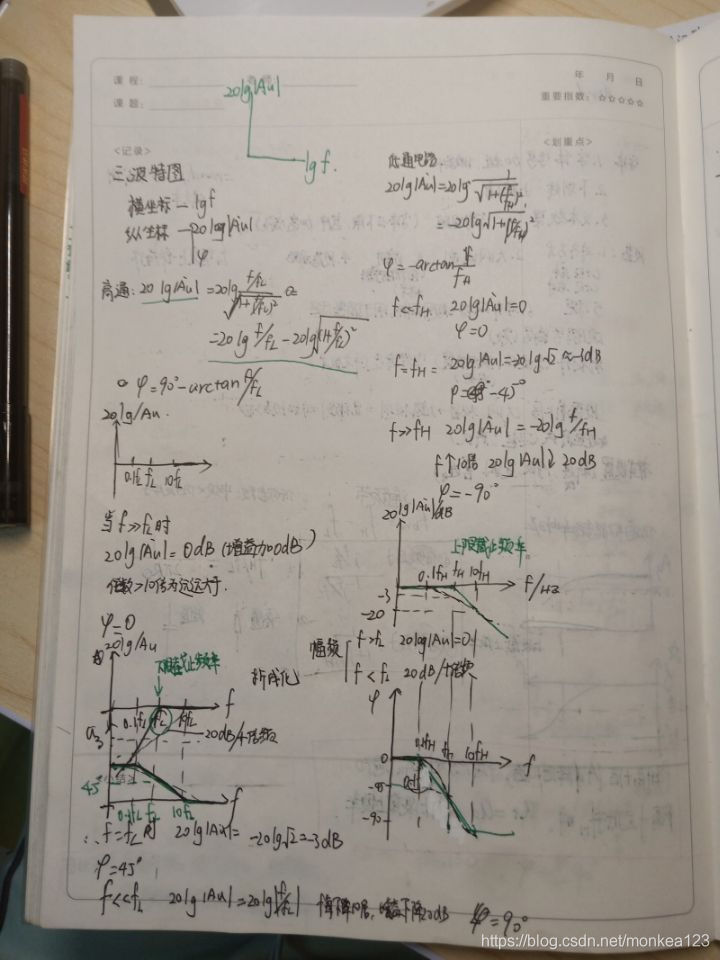 课程:
课题:
年 月 日
重要指数: ☆☆☆☆☆
20lg|Au|
lg f.
<记录>
三、波特图
横坐标 — lgf
纵坐标 — 20log|Au|
φ
高通: 20 lg|Au| = 20lg (f/fL)/√(1+(f/fL)²)
=20lg f/fL - 20lg√(1+f/fL)²
φ=90°-arctan f/fL
20lg/Au.
0.1fL fL 10fL
当 f≫fL时
20lg|Au|= 0dB (增益为0dB)
倍数>10倍为远远大于.
φ=0
20lg/Au
下限截止频率
折线化
f
0.1fL fL 10fL
-3
20dB/十倍频
45°
0.1fL fL 10fL
f
∴ f=fL时 20lg|Au|= -20lg√2=-3dB
φ=45°
f<<fL 20lg|Au|=20lg|f/fL| f下降10倍,增益下降20dB φ=90°
<划重点>
低通电路.
20lg|Au|=20lg 1/√(1+(f/fH)²)
=-20lg√1+(f/fH)²
φ=-arctan f/fH
f≪fH 20lg|Au|=0
φ=0
f=fH = 20lg|Au|=-20lg√2≈-3dB
φ= -45°
f≫fH 20lg|Au|=-20lg f/fH
f↑10倍 20lg|Au|↓20dB
φ=-90°
20lg|Au|dB
上限截止频率
0.1fH fH 10fH
f/HZ
-3
-20
幅频
f>fL 20lg|Au|=0
f<fL 20dB/十倍频
φ
0
0.1fH fH 10fH
f
-45
-90
https://blog.csdn.net/monkea123